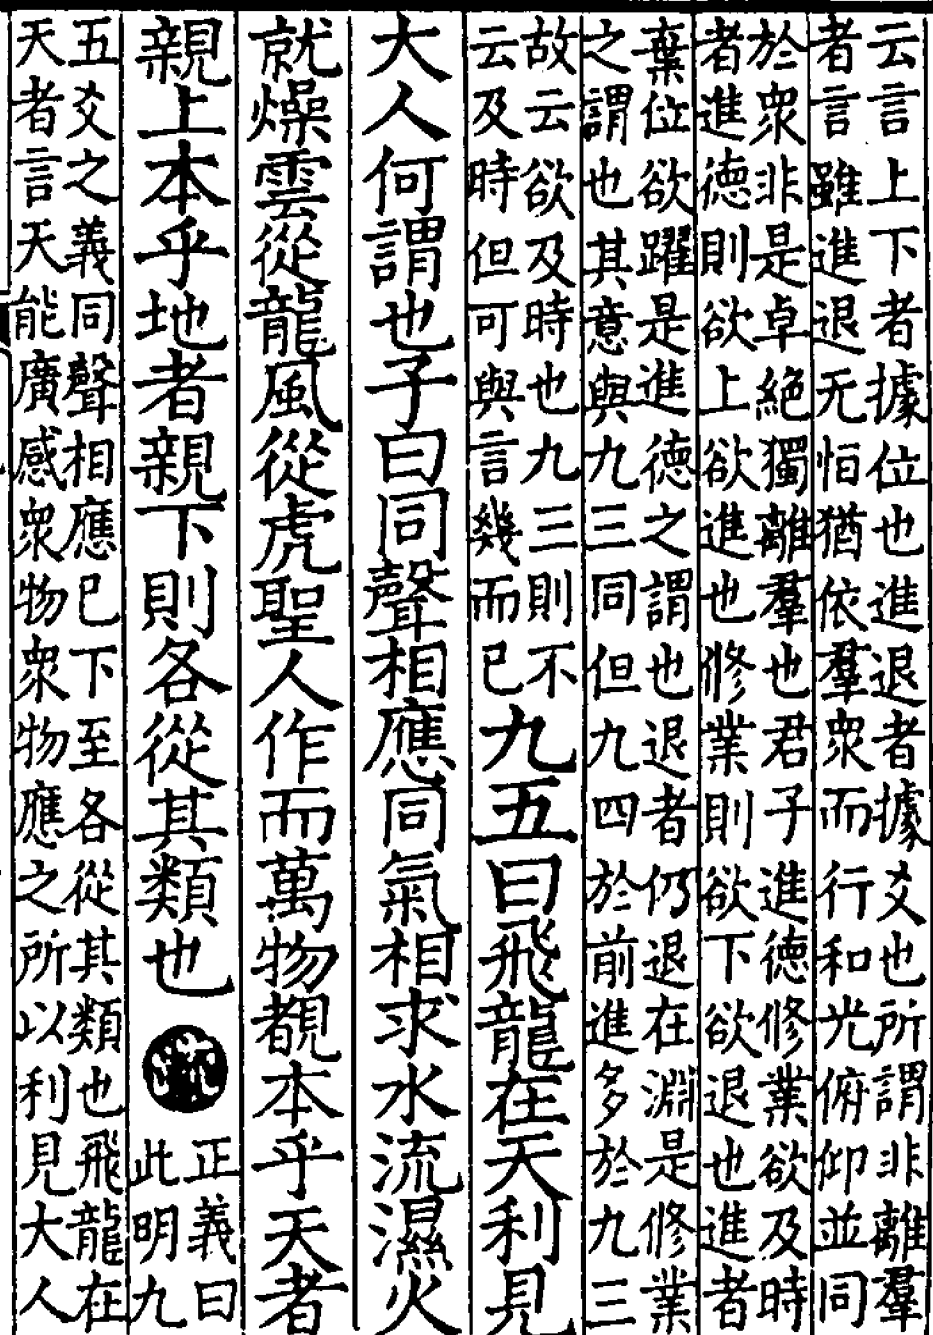 云言上下者據位也進退者據爻也所謂非離羣
者言雖進退无恒猶依羣衆而行和光俯仰並同
於衆非是卓絶獨離羣也君子進德修業欲及時
者進德則欲上欲進也修業則欲下欲退也進者
棄位欲躍是進德之謂也退者仍退在淵是修業
之謂也其意與九三同但九四於前進多於九三
故云欲及時也九三則不
云及時但可與言幾而已
九五曰飛龍在天利見
大人何謂也子曰同聲相應同氣相求水流濕火
就燥雲從龍風從虎聖人作而萬物覩本乎天者
親上本乎地者親下則各從其類也
疏
正義曰
此明九
五爻之義同聲相應已下至各從其類也飛龍在
天者言天能廣感衆物衆物應之所以利見大人